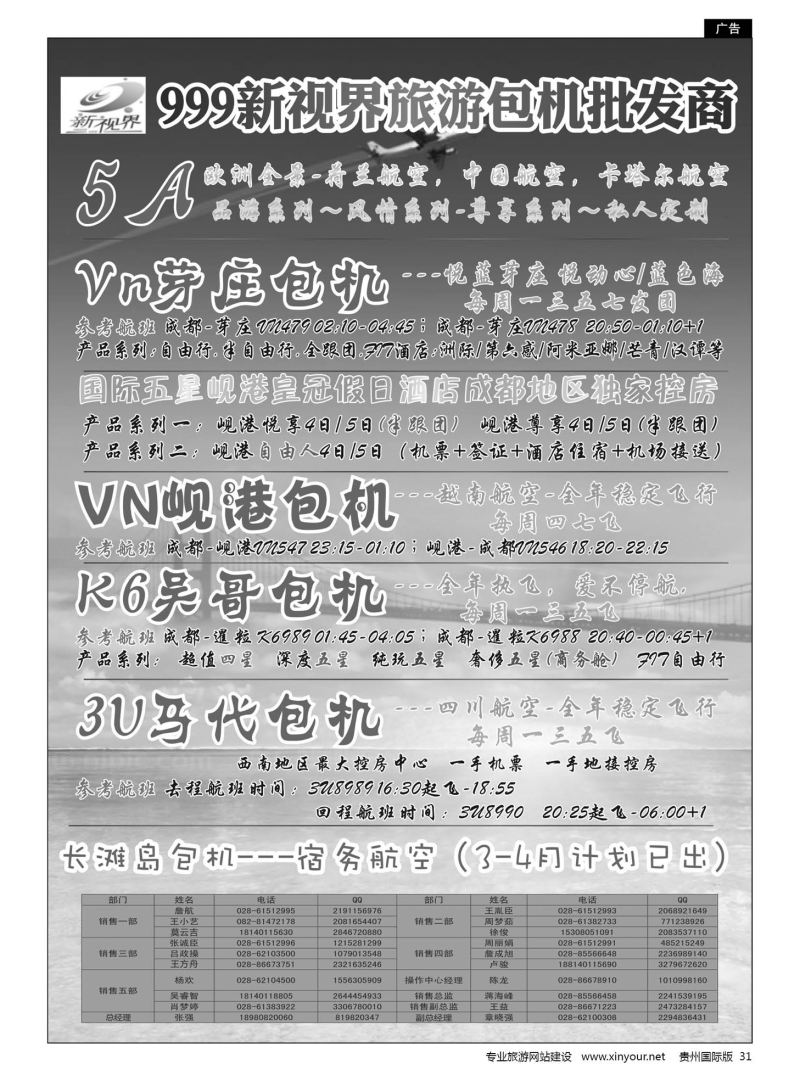 广告
新视界
999新视界旅游包机批发商
5A 欧洲全景-荷兰航空，中国航空，卡塔尔航空
品游系列～风情系列-尊享系列～私人定制
Vn芽庄包机 ---悦蓝芽庄 悦动心/蓝色海
每周一三五七发团
参考航班 成都-芽庄VN479 02:10-04:45；成都-芽庄VN478 20:50-01:10+1
产品系列:自由行.半自由行.全跟团.FIT酒店:洲际/第六感/阿米亚娜/芒青/汉谭等
国际五星岘港皇冠假日酒店成都地区独家控房
产品系列一：岘港悦享4日/5日(半跟团) 岘港尊享4日/5日(半跟团)
产品系列二：岘港自由人4日/5日 (机票+签证+酒店住宿+机场接送)
VN岘港包机 ---越南航空-全年稳定飞行
每周四七飞
参考航班 成都-岘港VN547 23:15-01:10；岘港-成都VN546 18:20-22:15
K6吴哥包机 ---全年执飞，爱不停航.
每周一三五飞
参考航班 成都-暹粒K6989 01:45-04:05；成都-暹粒K6988 20:40-00:45+1
产品系列： 超值四星 深度五星 纯玩五星 奢侈五星(商务舱) FIT自由行
3U马代包机 ---四川航空-全年稳定飞行
每周一三五飞
西南地区最大控房中心 一手机票 一手地接控房
参考航班 去程航班时间：3U8989 16:30起飞-18:55
回程航班时间：3U8990 20:25起飞-06:00+1
长滩岛包机---宿务航空（3-4月计划已出）
部门 姓名 电话 QQ 部门 姓名 电话 QQ
销售一部 詹航 028-61512995 2191156976 销售二部 王胤臣 028-61512993 2068921649
王小艺 082-81472178 2081654407 周梦茹 028-61382733 771238926
莫云吉 18140115630 2846720880 徐俊 15308051091 2083537110
销售三部 张诚臣 028-61512996 1215281299 销售四部 周丽娟 028-61512991 485215249
吕政操 028-62103500 1079013548 詹成旭 028-85566648 2236989140
王方舟 028-86673751 2321635246 卢骏 188140115690 3279672620
销售五部 杨欢 028-62104500 1556305909 操作中心经理 陈龙 028-86678910 1010998160
吴睿智 18140118805 2644454933 销售总监 蒋海峰 028-85566458 2241539195
肖梦婷 028-61383922 3306780010 销售副总监 王益 028-86671223 2473284157
总经理 张强 18980820060 819820347 副总经理 章晓强 028-62100308 2294836431
专业旅游网站建设 www.xinyour.net 贵州国际版 31